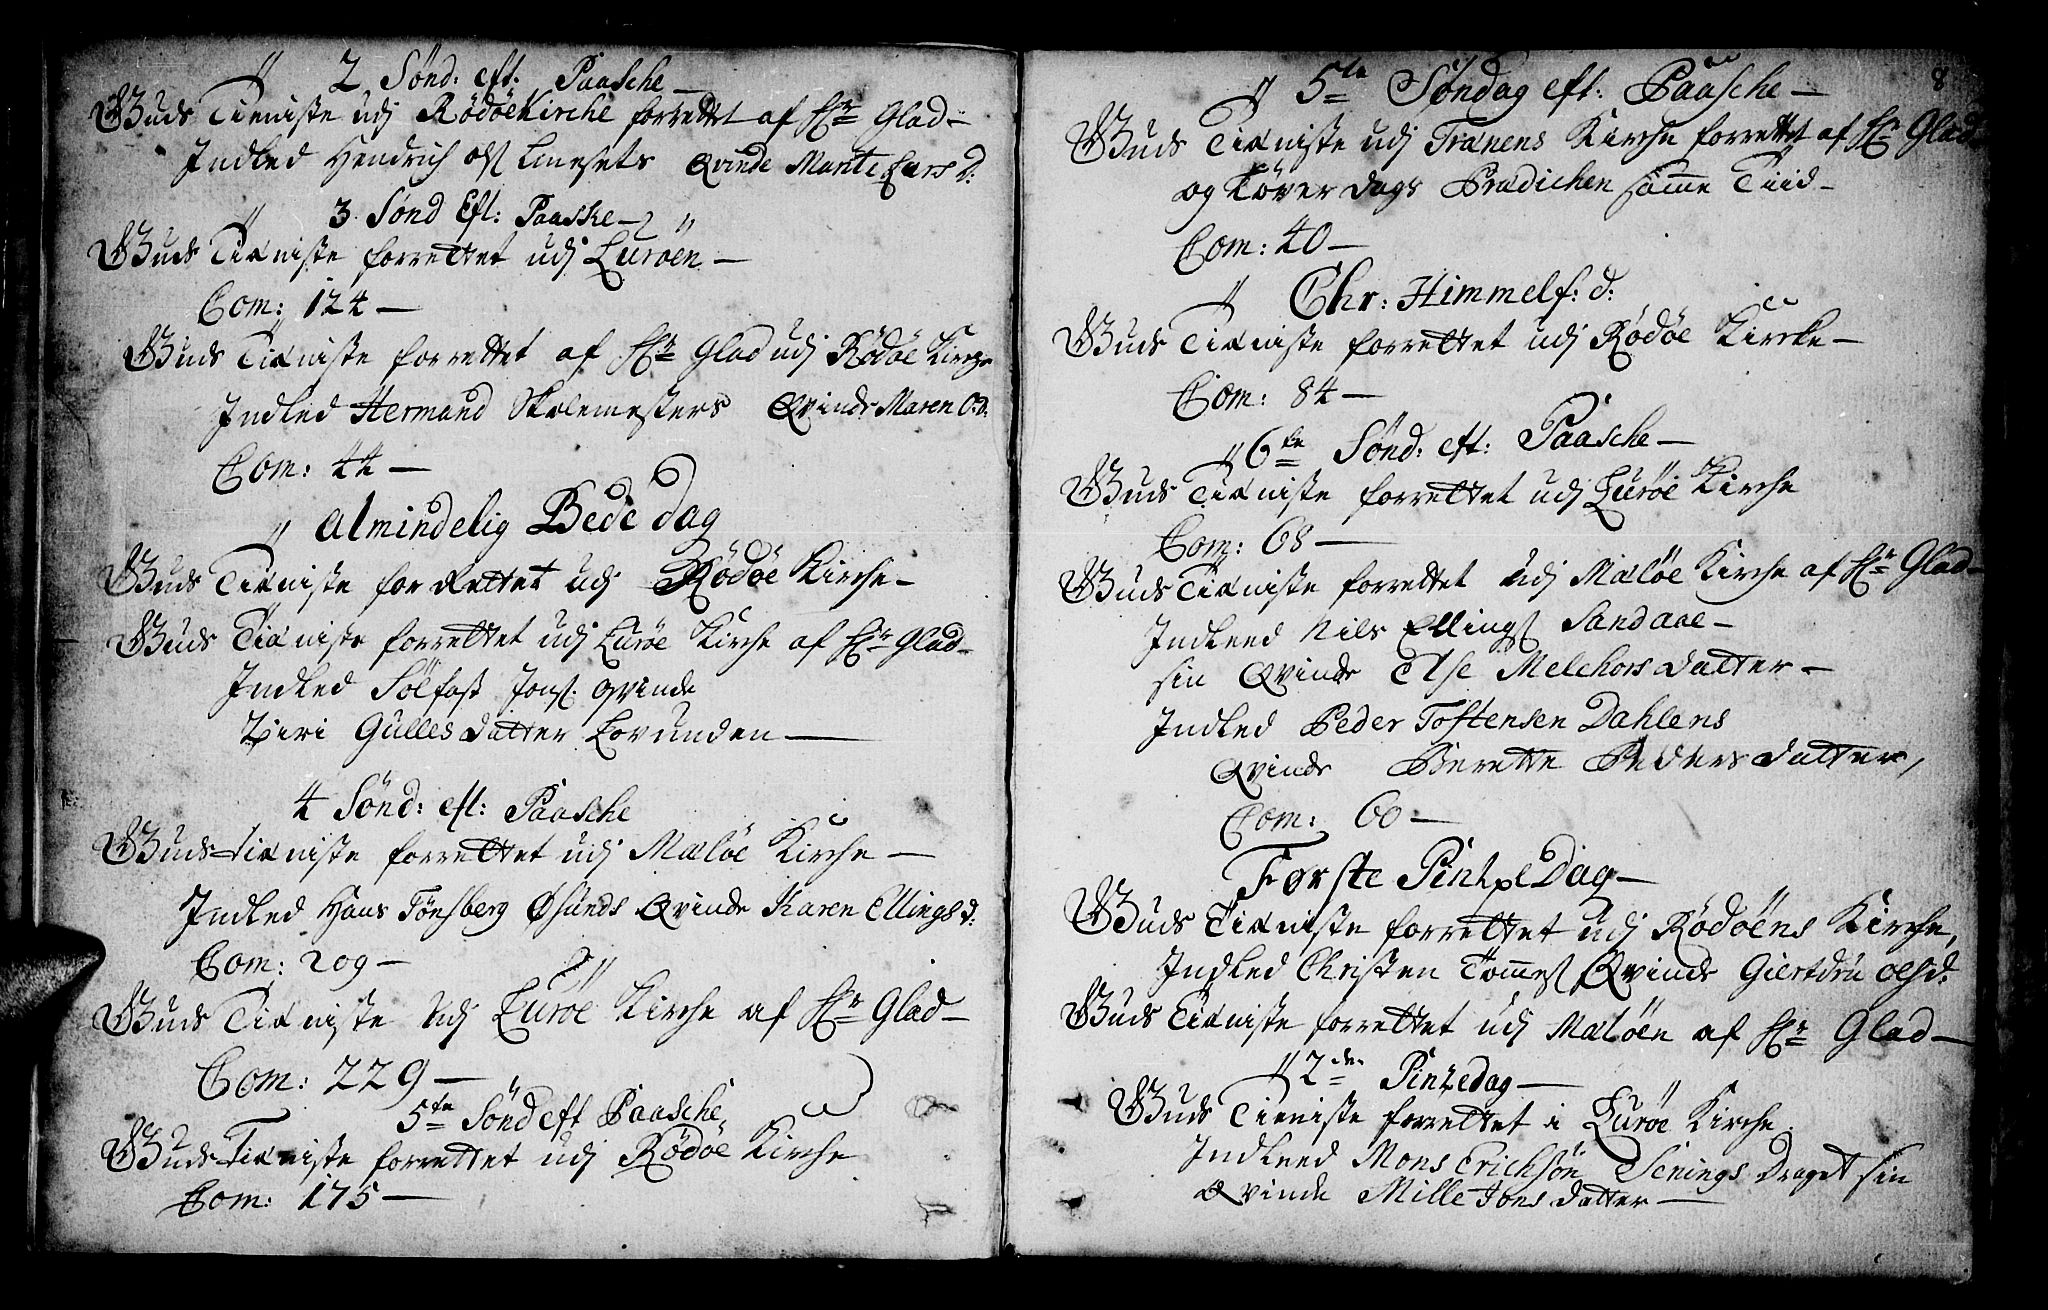 2 Sønd: eft: Paasche
Guds Tieniste udj Rødøe Kirche forrettet af Hr Glad
Indled Hendrich Ols: Qvinde Marite Lars D:
3 Sønd Eft: Paaske
Guds Tieniste forrettet udj Lurøen
Com: 124
Guds Tieniste forrettet af Hr Glad udj Rødøe Kirche
Indled Hermand Skolemesters Qvinde Maren O:D:
Com: 44
Almindelig Bede dag
Guds Tieniste forrettet udj Rødøe Kirche
Guds Tieniste forrettet udj Lurøe Kirche af Hr Glad
Indled Sølfast Jons: qvinde
Ziri Gulles datter Lovunden
4 Sønd: eft: Paasche
Guds tieniste forrettet udj Mæløe Kirche
Indled Hans Tønsberg Øsunds Qvinde Karen Ellings d:
Com: 209
Guds Tieniste udj Lurøe Kirche af Hr Glad
Com: 229
5te Sønd eft Paasche
Guds Tieniste forrettet udj Rødøe Kirche
Com: 175
8
5te Søndag eft: Paasche
Guds Tieniste udj Trænens Kirche forrettet af Hr Glad
og Løverdags Prædichen samme Tiid
Com: 40
Chr: Himmelf: d:
Guds Tieniste forrettet udj Rødøe Kircke
Com: 84
6te Sønd: eft: Paasche
Guds Tieniste forrettet udj Lurøe Kirche
Com: 68
Guds Tieniste forrettet udj Mæløe Kirche af Hr Glad
Indleed Nils Ellings: Sandaae
sin Qvinde Else Melchors datter
Indled Peder Toftensen Dahlens
Qvinde Berette Peders datter,
Com: 60
Første Pintze Dag
Guds Tieniste forrettet udj Rødøens Kirche,
Indled Christen Tommes: Qvinde Giertdru Olsd:
Guds Tieniste forrettet udj Mæløen af Hr Glad
2den Pintzedag
Guds Tieniste forrettet i Lurøe Kirche.
Indleed Mons Erichsøn Draget sin
Qvinde Mille Jons datter